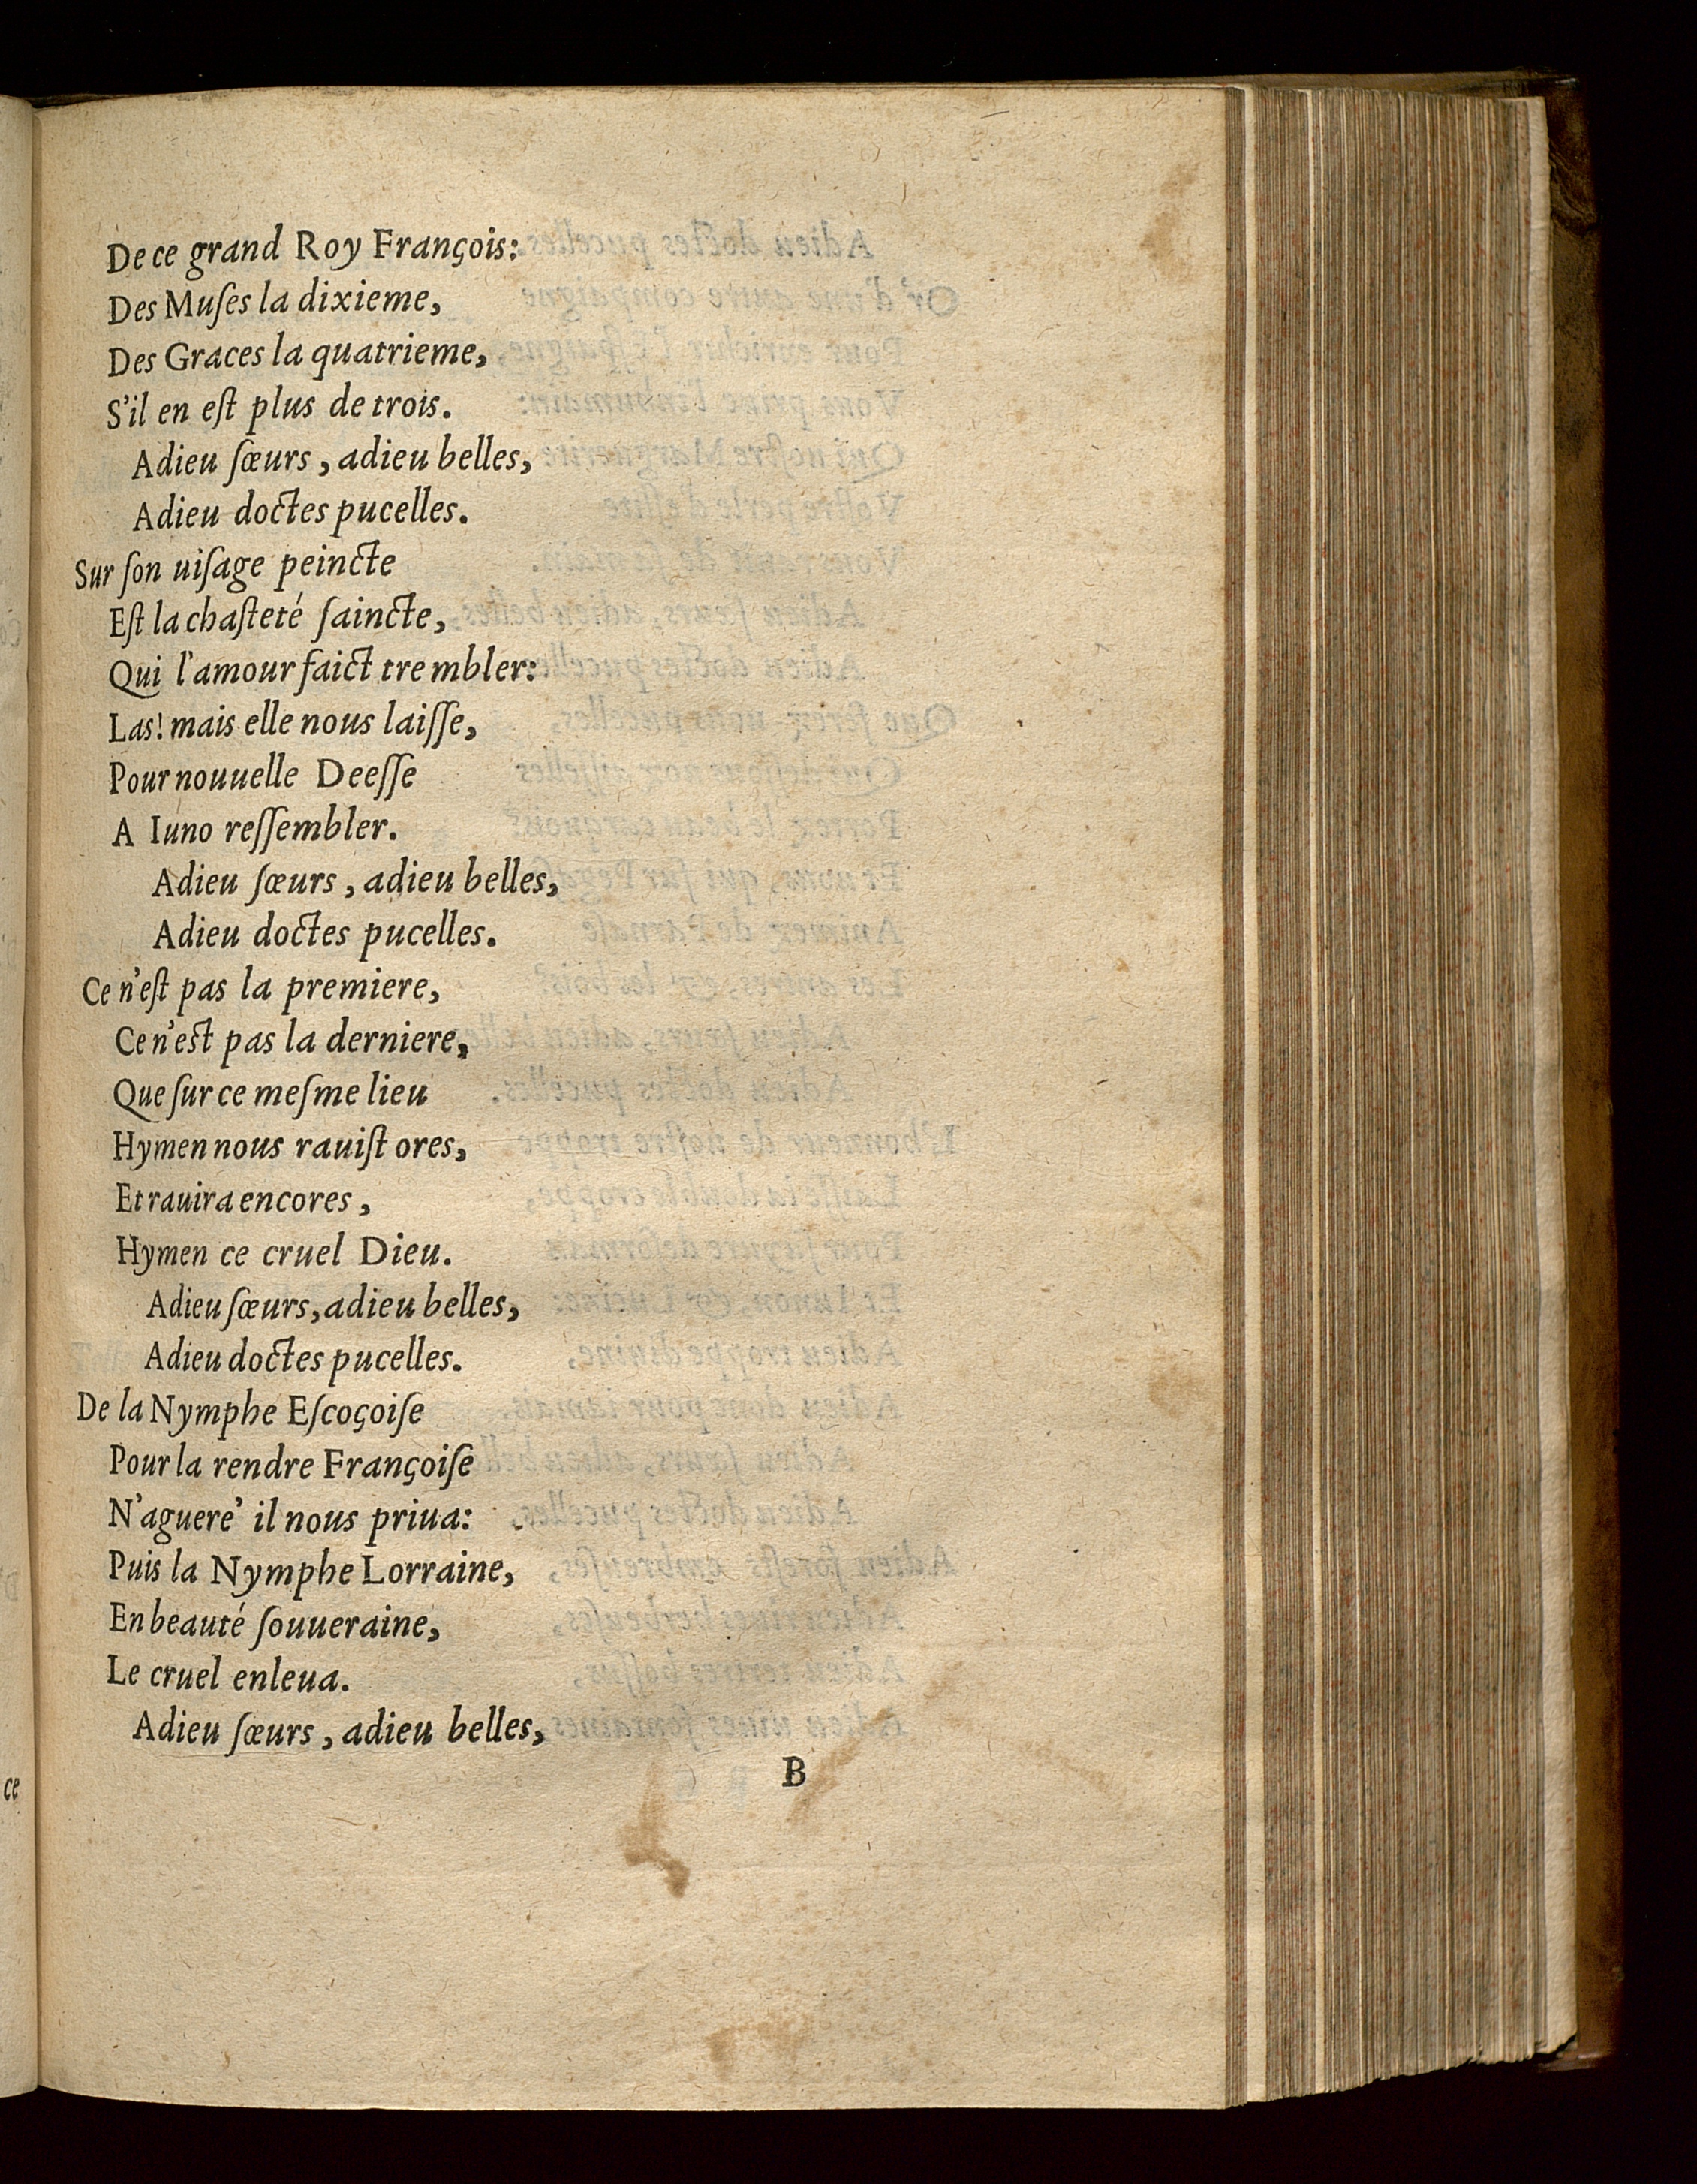 De ce grand Roy François:
Des Muſes la dixieme,
Des Graces la quatrieme,
S'il en eſt plus de trois.
Adieu ſœurs, adieu belles,
Adieu doctes pucelles.
Sur ſon uiſage peincte
Eſt la chaſteté ſaincte,
Qui l'amour faict trembler:
Las! mais elle nous laiſſe,
Pour nouuelle Deeſſe
A Iuno reſſembler.
Adieu ſœurs, adieu belles,
Adieu doctes pucelles.
Ce n'eſt pas la premiere,
Ce n'est pas la derniere,
Que ſur ce meſme lieu
Hymen nous rauiſt ores,
Et rauira encores,
Hymen ce cruel Dieu.
Adieu ſœurs, adieu belles,
Adieu doctes pucelles.
De la Nymphe Eſcoçoiſe
Pour la rendre Françoiſe
N'aguere' il nous priua:
Puis la Nymphe Lorraine,
En beauté ſouueraine,
Le cruel enleua.
Adieu ſœurs, adieu belles,
B
ce